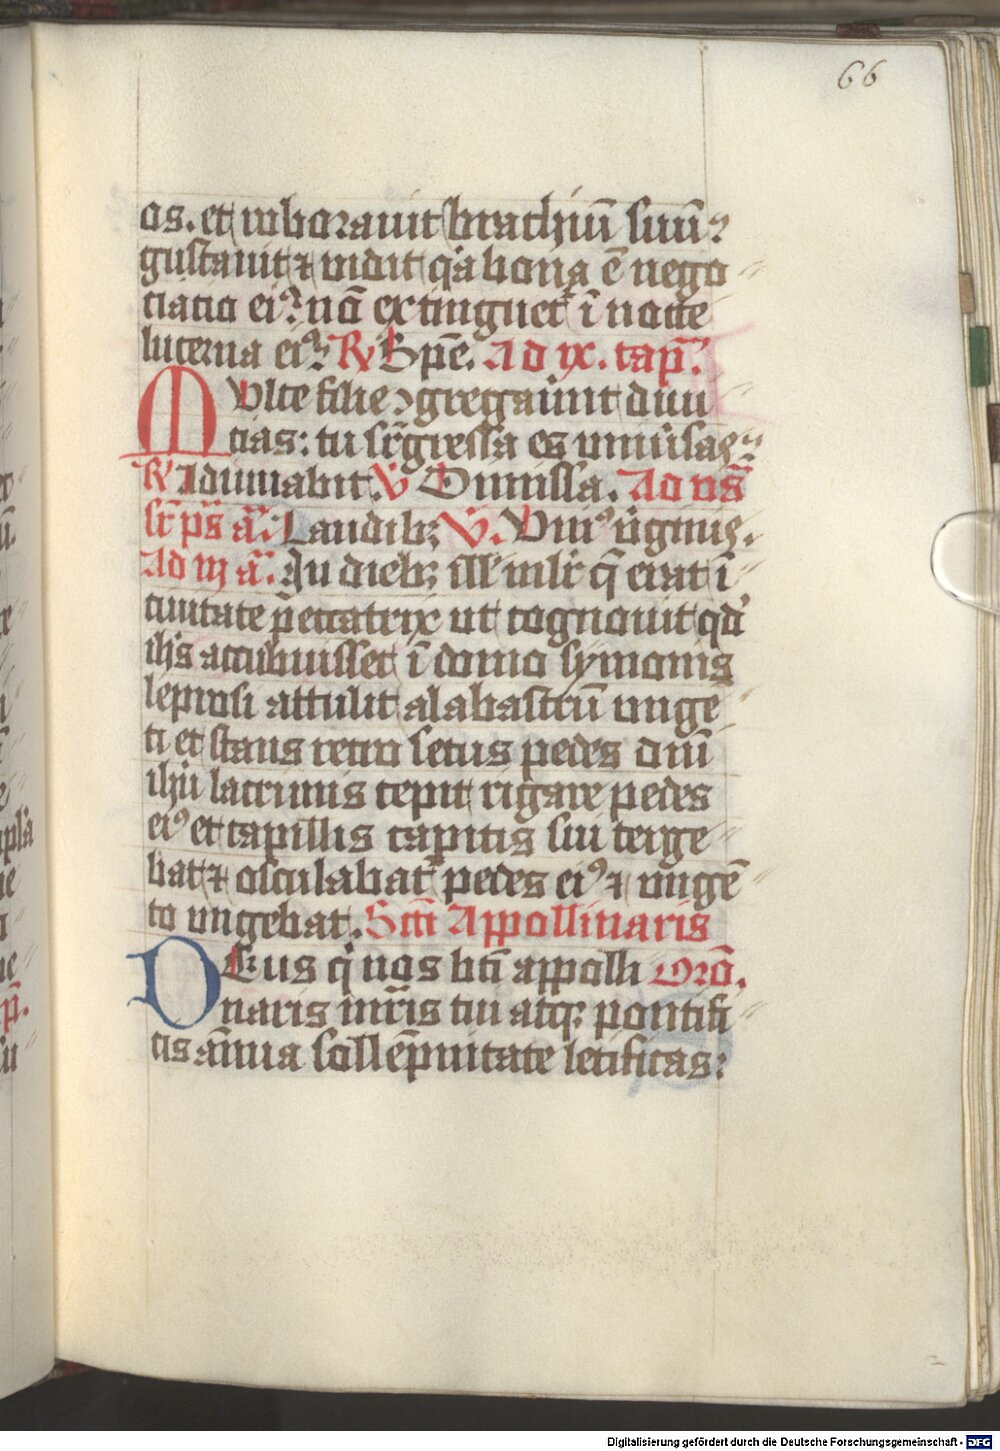 66
os. et roborauit brachiū suū?
gustauit ⁊ vidit q̇a bona ē nego
ciatio eiꝰ? nō extinguet᷑ ī nocte
lucerna eiꝰ? R̷ Spē. Ad ix. cap̄.
Multe filie ꝯgregauı̄t diui
cias: tu suꝑgressa es vniu̾sas?
R̷ Adiuuabit. V̷ Dimissa. Ad vs̄
sr̄ ps̄ a᷑. Laudibꝫ V̷. Huiꝰ v̾ginis.
Ad m̄ a᷑. In diebꝫ ill̕ ml̕r q̄ erat ī
ciuitate peccatrix ut cognouit qd̕
ih̄s accubuisset ī domo symonis
leprosi attulit alabastrū unge
ti et stans retro secus pedes dnı̄
ihū lacrimis cepit rigare pedes
eiꝰ et capillis capitis sui terge
bat ⁊ osculabat᷑ pedes eiꝰ ⁊ ungē
to ungebat. Scı̄ Appollinaris
Deus q̇ nos btı̄ appolli Orō.
naris mr̄is tui atqꝫ pontifi
cis ānua sollēpnitate letificas:
Digitalisierung gefördert durch die Deutsche Forschungsgemeinschaft - DFG